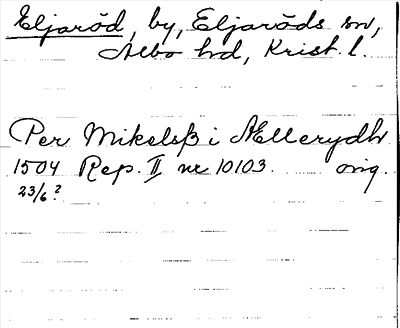 Eljaröd, by, Eljaröds sn,
Albo hd, Krist. l.
Per Mikelsß i Ællerydh
1504 Rep. II nr 10103. orig.
23/6?